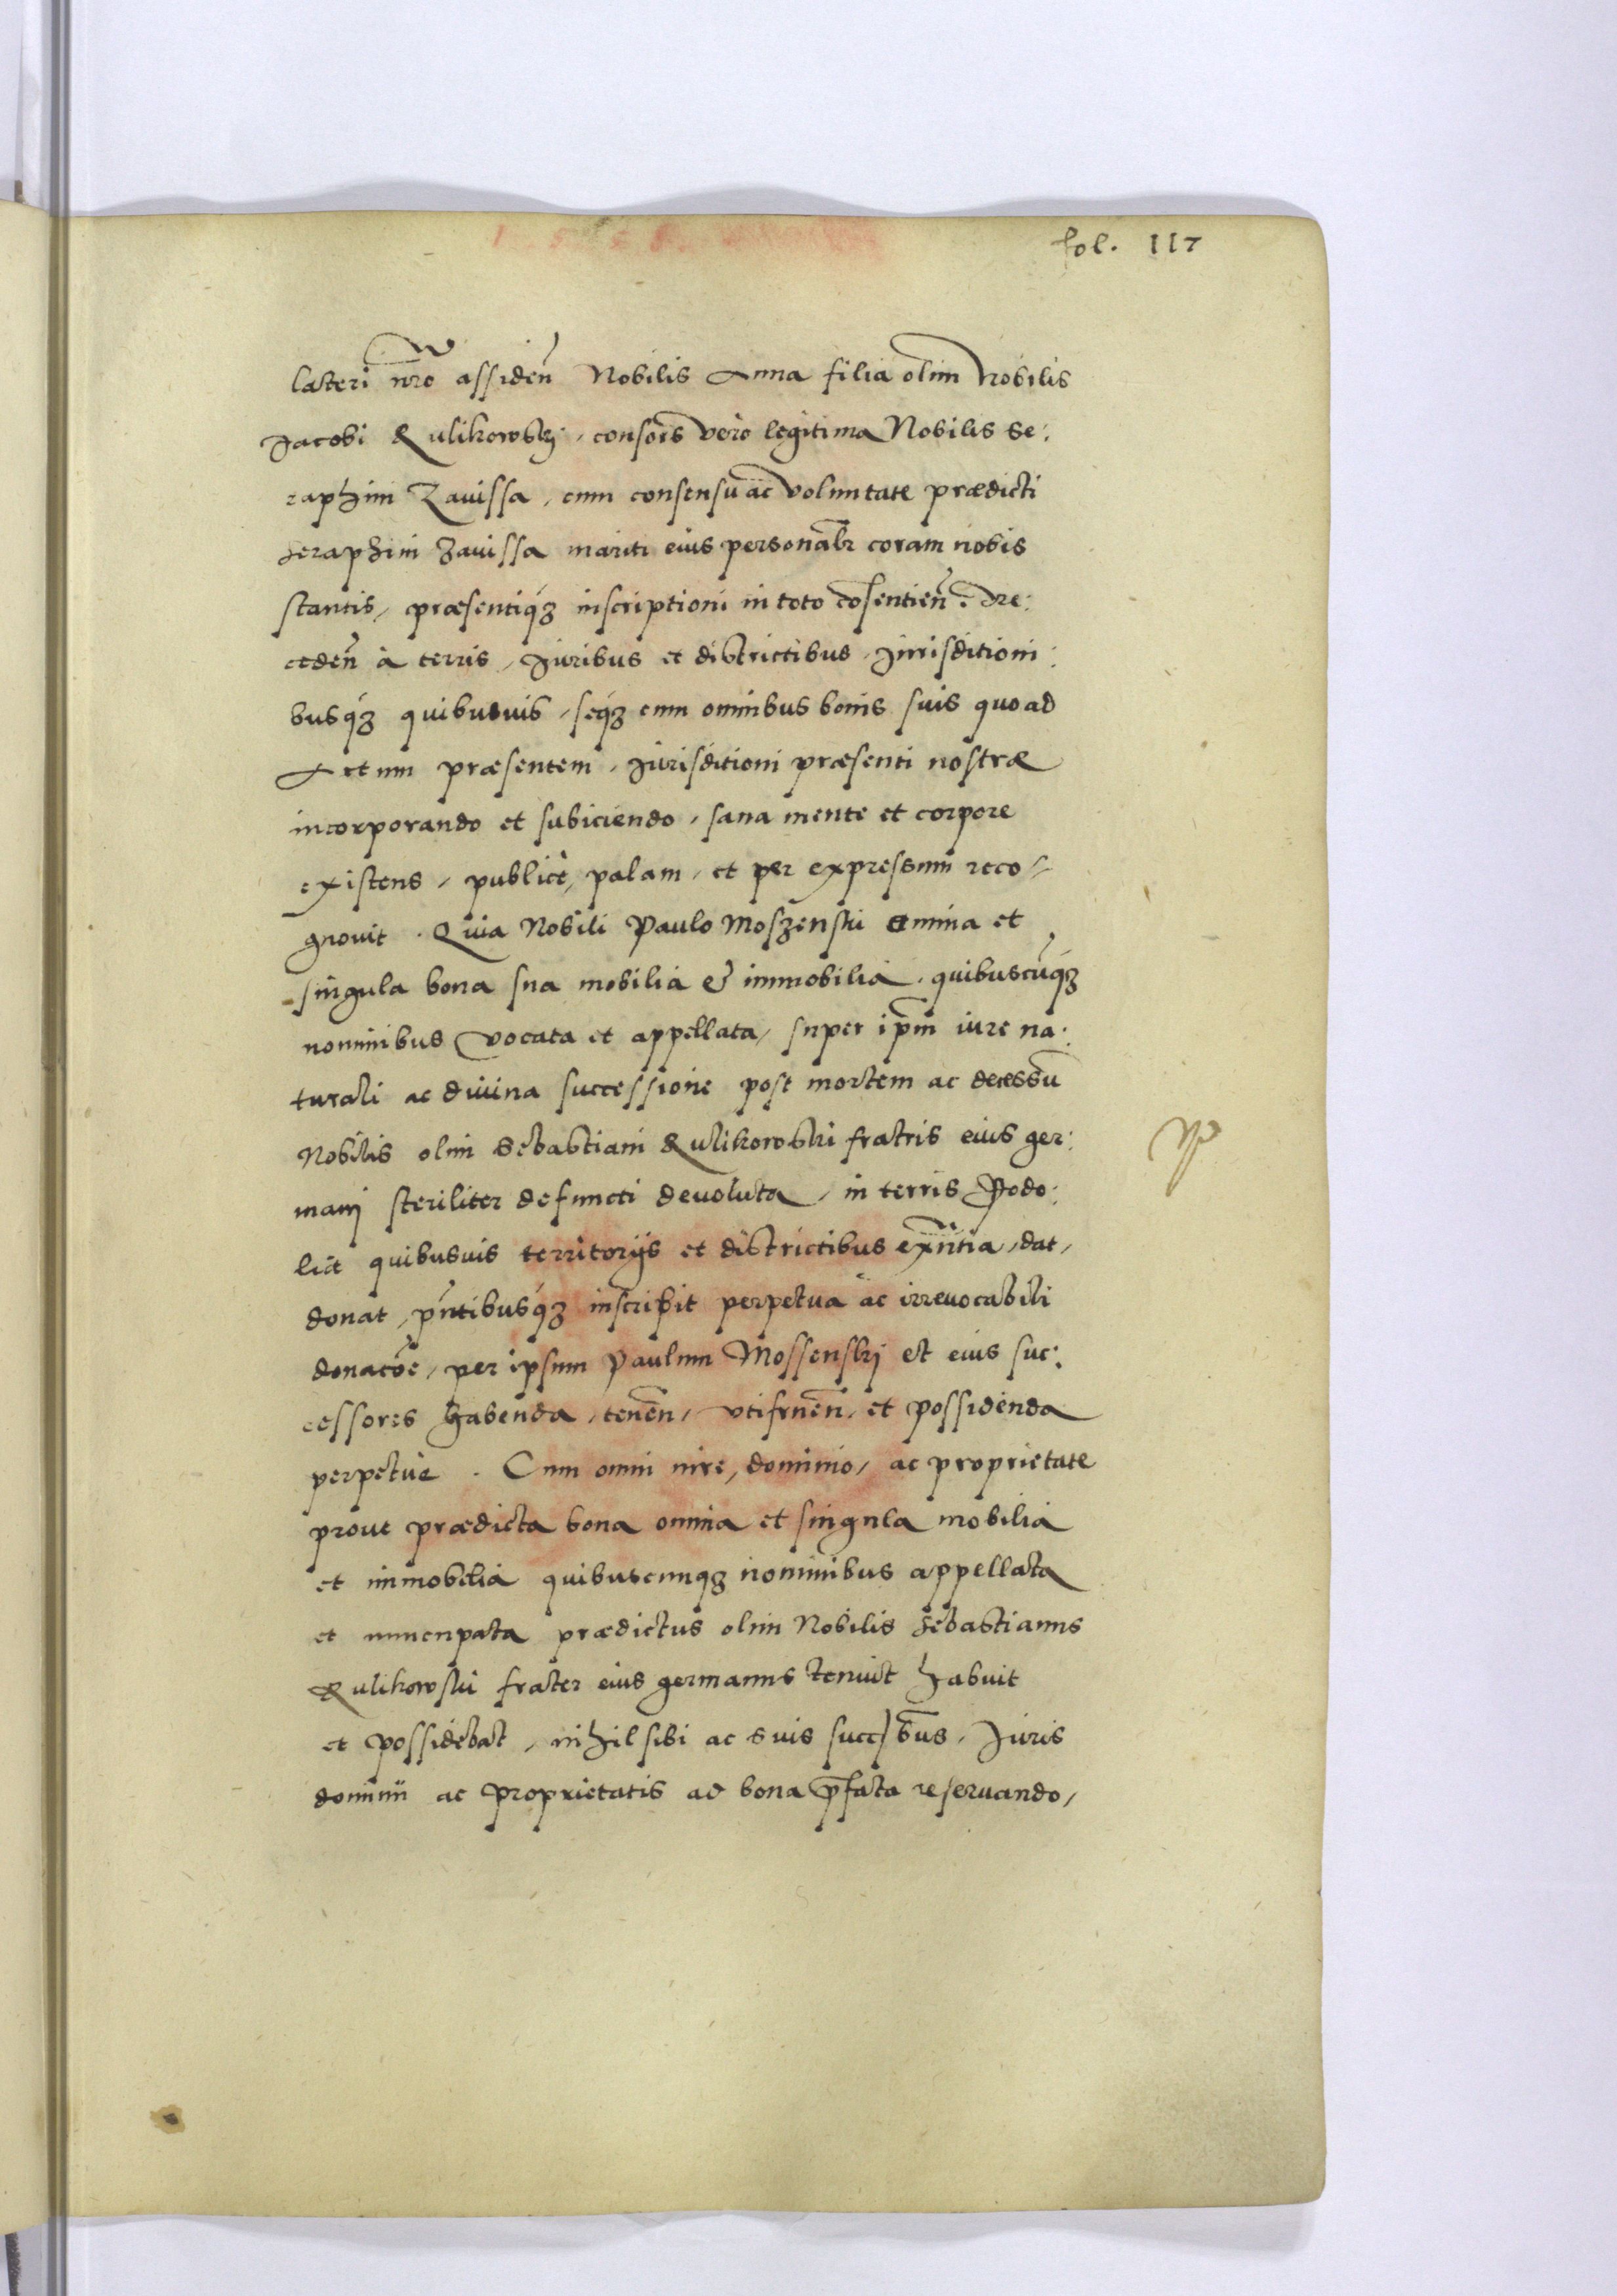 fol. 117
lateri nr̃o assideñ Nobilis Anna filia olim Nobilis
Jacobi Kulikowskj, consors vero legitima Nobilis Se:
raphim Zauissa, cum consensu ac voluntate prædicti
Seraphim Zauissa mariti eius personalr̃ coram nobis
stantis, præsentiq́ꝫ inscriptioni in toto cõsentieñ. Re:
cedeñ à terris, Juribus et districtibus, Jurisditioni:
busq́ꝫ quibusuis, seq́ꝫ cum omnibus bonis suis quo ad
Actum præsentem, Jurisditioni præsenti nostræ
incorporando et subiciendo, sana mente et corpore
existens, publicè, palam, et per expressum reco⸗
gnouit. Quia Nobili Paulo Moszenski omnia et
singula bona sua mobilia & immobilia, quibuscũq́ꝫ
nominibus vocata et appellata, super ip̃m iure na:
turali ac diuina successione post mortem ac decessũ
Nobilis olim Sebastiani Kulikowski fratris eius ger:
manj steriliter defuncti deuoluta, in terris Podo:
liæ quibusuis territorijs et districtibus exñtia, dat,
donat, pñtibusq́ꝫ inscribit perpetua ac irreuocabili
donacõe, per ipsum Paulum Mossenskj et eius suc:
cessores habenda, teneñ, vtifrueñ, et possidenda
perpetuè. Cum omni iure, dominio, ac proprietate
prout prædicta bona omnia et singula mobilia
et immobilia quibuscunqꝫ nominibus appellata
et nuncupata prædictus olim Nobilis Sebastianus
Kulikowski frater eius germanus tenuit habuit
et possidebat, nihil sibi ac suis succ̃bus, Juris
dominii ac proprietatis ad bona p̃fata reseruando,